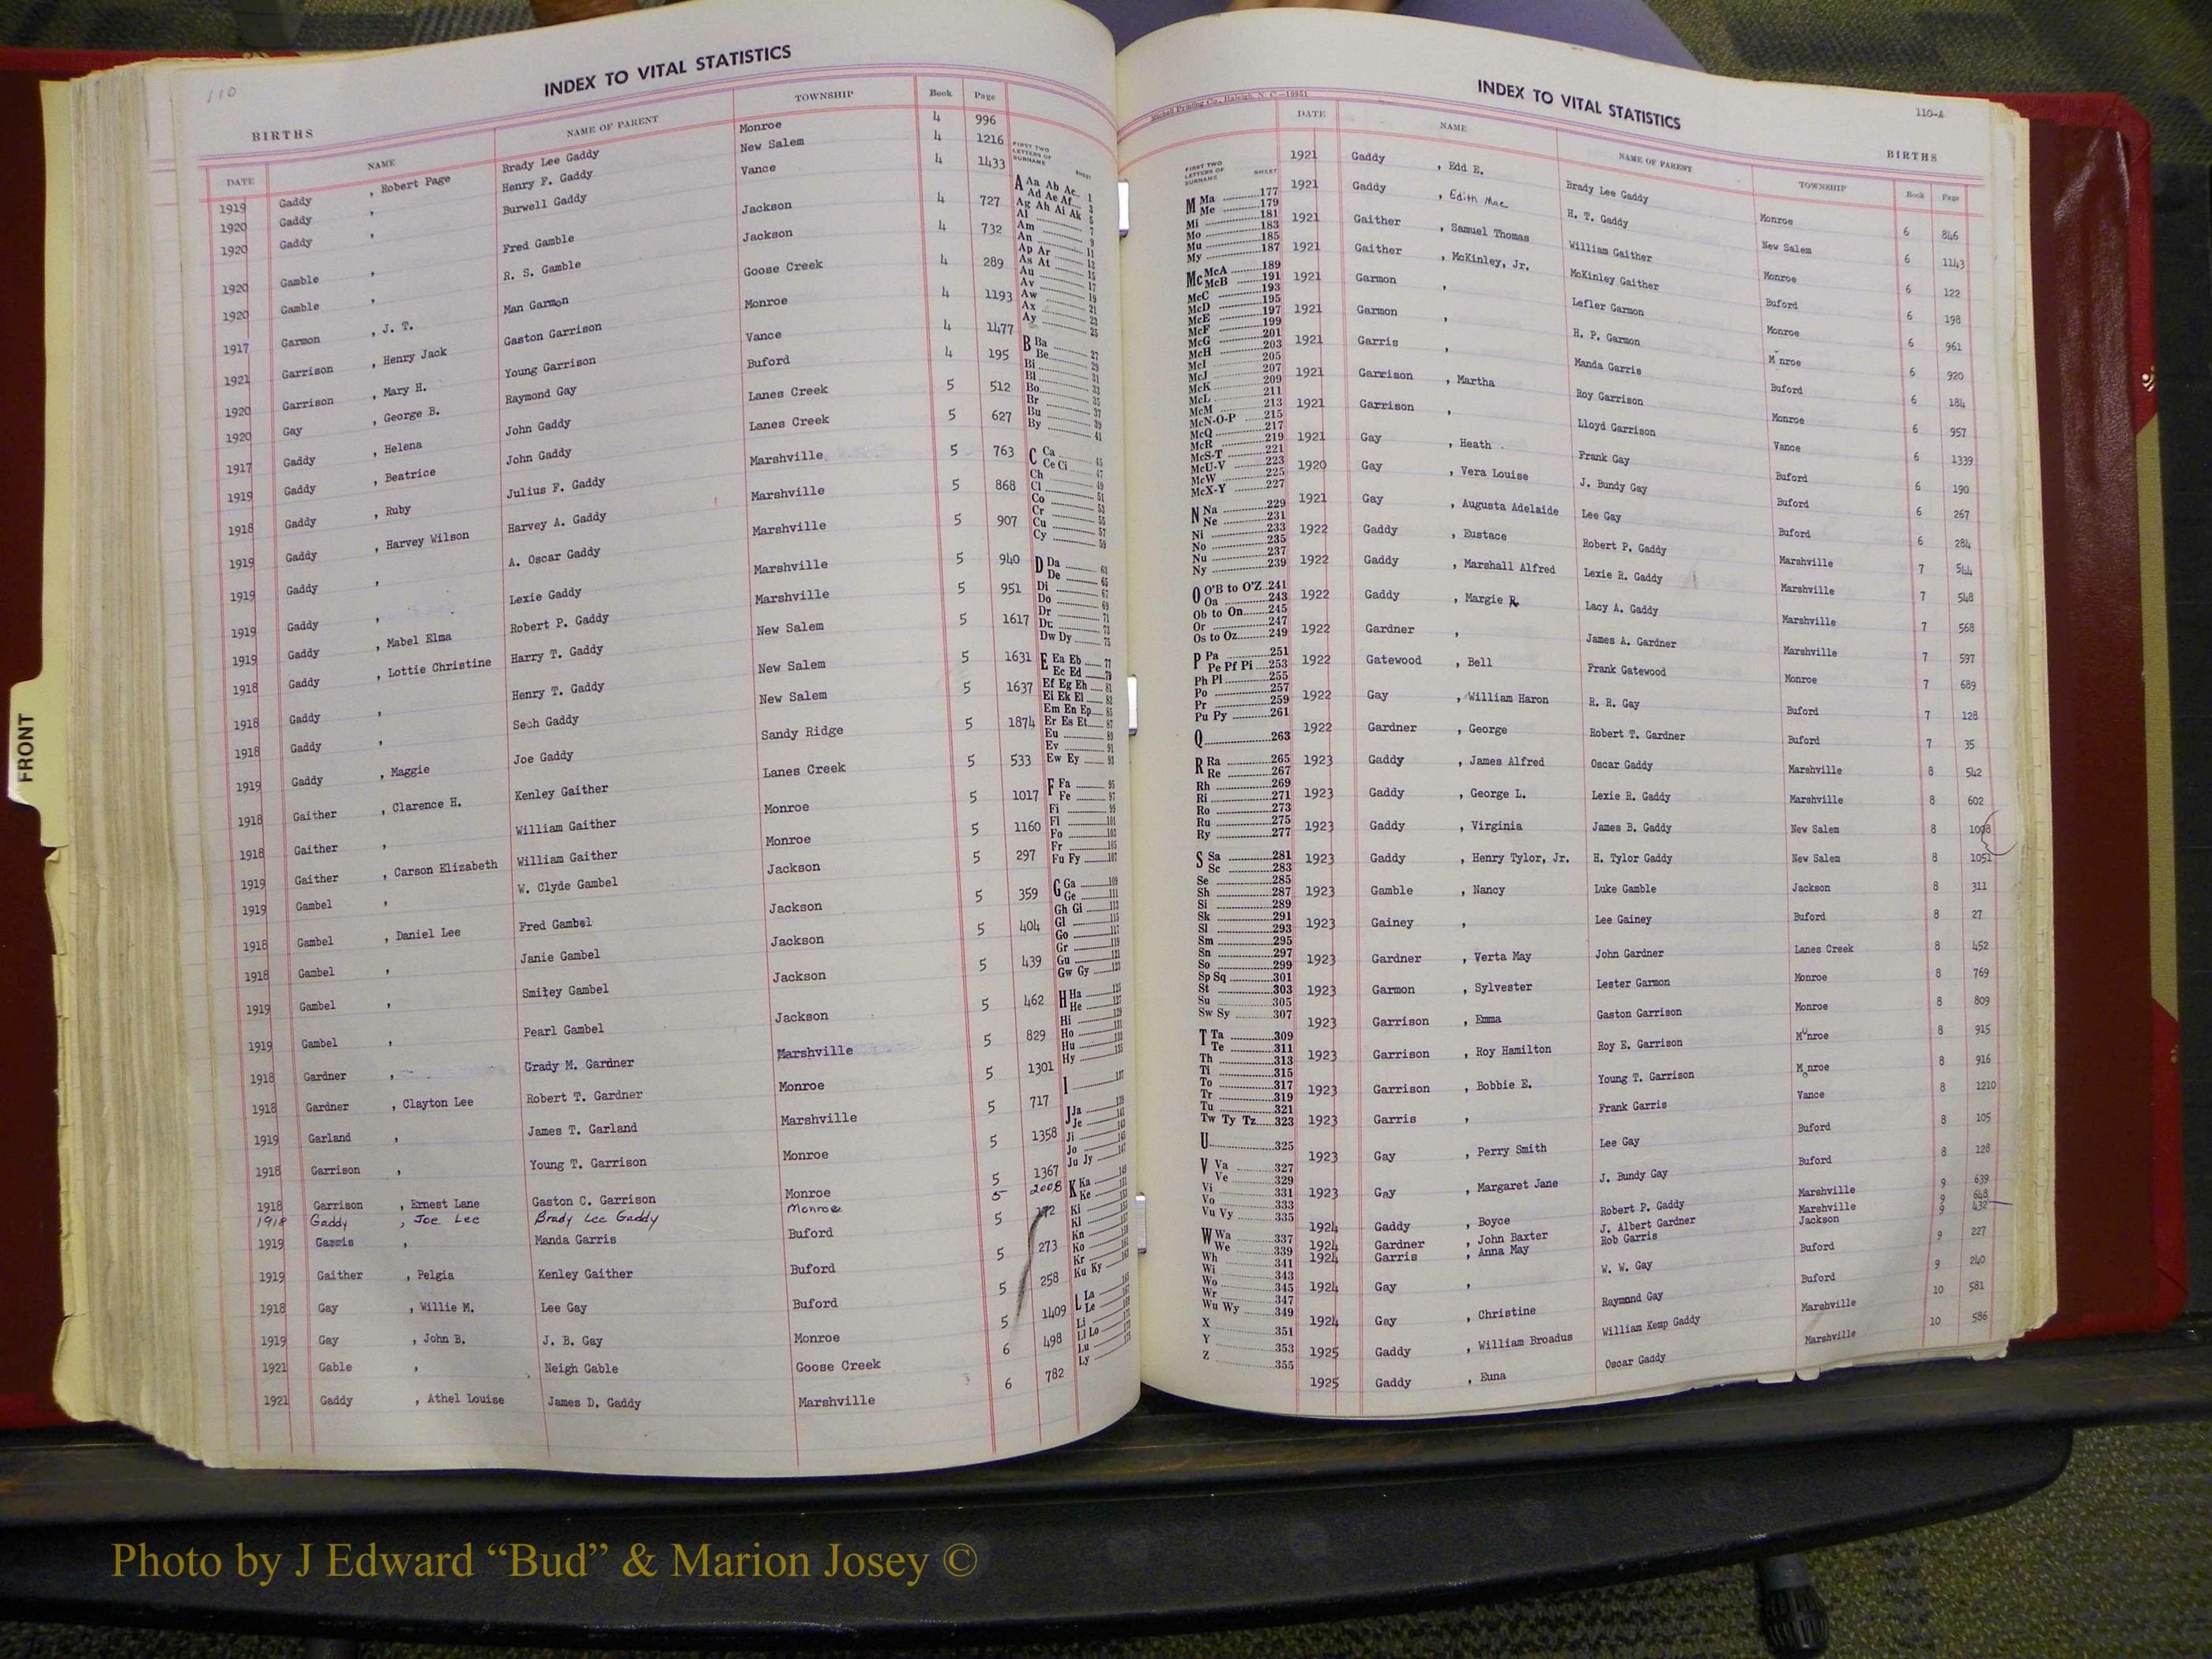 110
INDEX TO VITAL STATISTICS
BIRTHS
DATE NAME NAME OF PARENT TOWNSHIP Book Page
1919 Gaddy , Robert Page Brady Lee Gaddy Monroe 4 996
1920 Gaddy , Henry F. Gaddy New Salem 4 1216
1920 Gaddy , Burwell Gaddy Vance 4 1433
1920 Gamble , Fred Gamble Jackson 4 727
1920 Gamble , R. S. Gamble Jackson 4 732
1917 Garmon , J. T. Man Garmon Goose Creek 4 289
1921 Garrison , Henry Jack Gaston Garrison Monroe 4 1193
1920 Garrison , Mary H. Young Garrison Vance 4 1477
1920 Gay , George B. Raymond Gay Buford 4 195
1917 Gaddy , Helena John Gaddy Lanes Creek 5 512
1919 Gaddy , Beatrice John Gaddy Lanes Creek 5 627
1918 Gaddy , Ruby Julius F. Gaddy Marshville 5 763
1919 Gaddy , Harvey Wilson Harvey A. Gaddy Marshville 5 868
1919 Gaddy , A. Oscar Gaddy Marshville 5 907
1919 Gaddy , Lexie Gaddy Marshville 5 940
1919 Gaddy , Mabel Elma Robert P. Gaddy Marshville 5 951
1918 Gaddy , Lottie Christine Harry T. Gaddy New Salem 5 1617
1918 Gaddy , Henry T. Gaddy New Salem 5 1631
1918 Gaddy , Gaddy New Salem 5 1637
1919 Gaddy , Maggie Joe Gaddy Sandy Ridge 5 1874
1918 Gaither , Clarence H. Kenley Gaither Lanes Creek 5 533
1918 Gaither , William Gaither Monroe 5 1017
1919 Gaither , Carson Elizabeth William Gaither Monroe 5 1160
1919 Gambel , W. Clyde Gambel Jackson 5 297
1918 Gambel , Daniel Lee Fred Gambel Jackson 5 359
1918 Gambel , Janie Gambel Jackson 5 404
1919 Gambel , Smiley Gambel Jackson 5 439
1919 Gambel , Pearl Gambel Jackson 5 462
1918 Gardner , Grady M. Gardner Marshville 5 829
1918 Gardner , Clayton Lee Robert T. Gardner Monroe 5 1301
1919 Garland , James T. Garland Marshville 5 717
1918 Garrison , Young T. Garrison Monroe 5 1358
1918 Garrison , Ernest Lane Gaston C. Garrison Monroe 5 1367
1918 Gaddy , Joe Lee Brady Lee Gaddy Monroe 5 2008
1919 Garris , Manda Garris Buford 5 172
1919 Gaither , Pelgia Kenley Gaither Buford 5 273
1918 Gay , Willie M. Lee Gay Buford 5 258
1919 Gay , John B. J. B. Gay Monroe 5 1409
1921 Gable , Neigh Gable Goose Creek 6 498
1921 Gaddy , Athel Louise James D. Gaddy Marshville 6 782
FIRST TWO
LETTERS OF
SURNAME SHEET
A Aa Ab Ac 1
Ad Ae Af 3
Ag Ah Ai Ak 5
Al 7
Am 9
An 11
Ap Ar 13
As At 15
Au 17
Av 19
Aw 21
Ax 23
Ay 25
B Ba 27
Be 29
Bi 31
Bl 33
Bo 35
Br 37
Bu 39
By 41
C Ca 45
Ce Ci 47
Ch 49
Cl 51
Co 53
Cr 55
Cu 57
Cy 59
D Da 63
De 65
Di 67
Do 69
Dr 71
Du 73
Dw Dy 75
E Ea Eb 77
Ec Ed 79
Ef Eg Eh 81
Ei Ek El 83
Em En Ep 85
Er Es Et 87
Eu 89
Ev 91
Ew Ey 93
F Fa 95
Fe 97
Fi 99
Fl 101
Fo 103
Fr 105
Fu Fy 107
G Ga 109
Ge 111
Gh Gi 113
Gl 115
Go 117
Gr 119
Gu 121
Gw Gy 123
H Ha 125
He 127
Hi 129
Ho 131
Hu 133
Hy 135
I 137
J Ja 139
Je 141
Ji 143
Jo 145
Ju Jy 147
K Ka 149
Ke 151
Ki
Kl
Kn
Ko
Kr
Ku Ky
L La
Le
Li
Ll Lo
Lu
Ly
FRONT
Mitchell Printing Co., Raleigh, N. C.—10951
INDEX TO VITAL STATISTICS
110-A
BIRTHS
FIRST TWO
LETTERS OF
SURNAME SHEET
M Ma 177
Me 179
Mi 181
Mo 183
Mu 185
My 187
Mc McA 189
McB 191
McC 193
McD 195
McE 197
McF 199
McG 201
McH 203
McI 205
McJ 207
McK 209
McL 211
McM 213
McN-O-P 215
McQ 217
McR 219
McS-T 221
McU-V 223
McW 225
McX-Y 227
N Na 229
Ne 231
Ni 233
No 235
Nu 237
Ny 239
O O'B to O'Z 241
Oa 243
Ob to On 245
Or 247
Os to Oz 249
P Pa 251
Pe Pf Pi 253
Ph Pl 255
Po 257
Pr 259
Pu Py 261
Q 263
R Ra 265
Re 267
Rh 269
Ri 271
Ro 273
Ru 275
Ry 277
S Sa 281
Sc 283
Se 285
Sh 287
Si 289
Sk 291
Sl 293
Sm 295
Sn 297
So 299
Sp Sq 301
St 303
Su 305
Sw Sy 307
T Ta 309
Te 311
Th 313
Ti 315
To 317
Tr 319
Tu 321
Tw Ty Tz 323
U 325
V Va 327
Ve 329
Vi 331
Vo 333
Vu Vy 335
W Wa 337
We 339
Wh 341
Wi 343
Wo 345
Wr 347
Wu Wy 349
X 351
Y 353
Z 355
DATE NAME NAME OF PARENT TOWNSHIP Book Page
1921 Gaddy , Edd E. Brady Lee Gaddy Monroe 6 846
1921 Gaddy , Edith Mae H. T. Gaddy New Salem 6 1143
1921 Gaither , Samuel Thomas William Gaither Monroe 6 122
1921 Gaither , McKinley, Jr. McKinley Gaither Buford 6 198
1921 Garmon , Lefler Garmon Monroe 6 961
1921 Garmon , H. P. Garmon M nroe 6 920
1921 Garris , Manda Garris Buford 6 184
1921 Garrison , Martha Roy Garrison Monroe 6 957
1921 Garrison , Lloyd Garrison Vance 6 1339
1921 Gay , Heath Frank Gay Buford 6 190
1920 Gay , Vera Louise J. Bundy Gay Buford 6 267
1921 Gay , Augusta Adelaide Lee Gay Buford 6 284
1922 Gaddy , Eustace Robert P. Gaddy Marshville 7 544
1922 Gaddy , Marshall Alfred Lexie R. Gaddy Marshville 7 548
1922 Gaddy , Margie R. Lacy A. Gaddy Marshville 7 568
1922 Gardner , James A. Gardner Marshville 7 597
1922 Gatewood , Bell Frank Gatewood Monroe 7 689
1922 Gay , William Haron R. R. Gay Buford 7 128
1922 Gardner , George Robert T. Gardner Buford 7 35
1923 Gaddy , James Alfred Oscar Gaddy Marshville 8 542
1923 Gaddy , George L. Lexie R. Gaddy Marshville 8 602
1923 Gaddy , Virginia James B. Gaddy New Salem 8 1008
1923 Gaddy , Henry Tylor, Jr. H. Tylor Gaddy New Salem 8 1051
1923 Gamble , Nancy Luke Gamble Jackson 8 311
1923 Gainey , Lee Gainey Buford 8 27
1923 Gardner , Verta May John Gardner Lanes Creek 8 452
1923 Garmon , Sylvester Lester Garmon Monroe 8 769
1923 Garrison , Emma Gaston Garrison Monroe 8 809
1923 Garrison , Roy Hamilton Roy E. Garrison Monroe 8 915
1923 Garrison , Bobbie E. Young T. Garrison Monroe 8 916
1923 Garris , Frank Garris Vance 8 1210
1923 Gay , Perry Smith Lee Gay Buford 8 105
1923 Gay , Margaret Jane J. Bundy Gay Buford 8 128
1924 Gaddy , Boyce Robert P. Gaddy Marshville 9 639
1924 Gardner , John Baxter J. Albert Gardner Marshville 9 648
1924 Garris , Anna May Rob Garris Jackson 9 432
1924 Gay , W. W. Gay Buford 9 227
1924 Gay , Christine Raymond Gay Buford 9 240
1925 Gaddy , William Broadus William Kemp Gaddy Marshville 10 581
1925 Gaddy , Euna Oscar Gaddy Marshville 10 586
Photo by J Edward “Bud” & Marion Josey ©